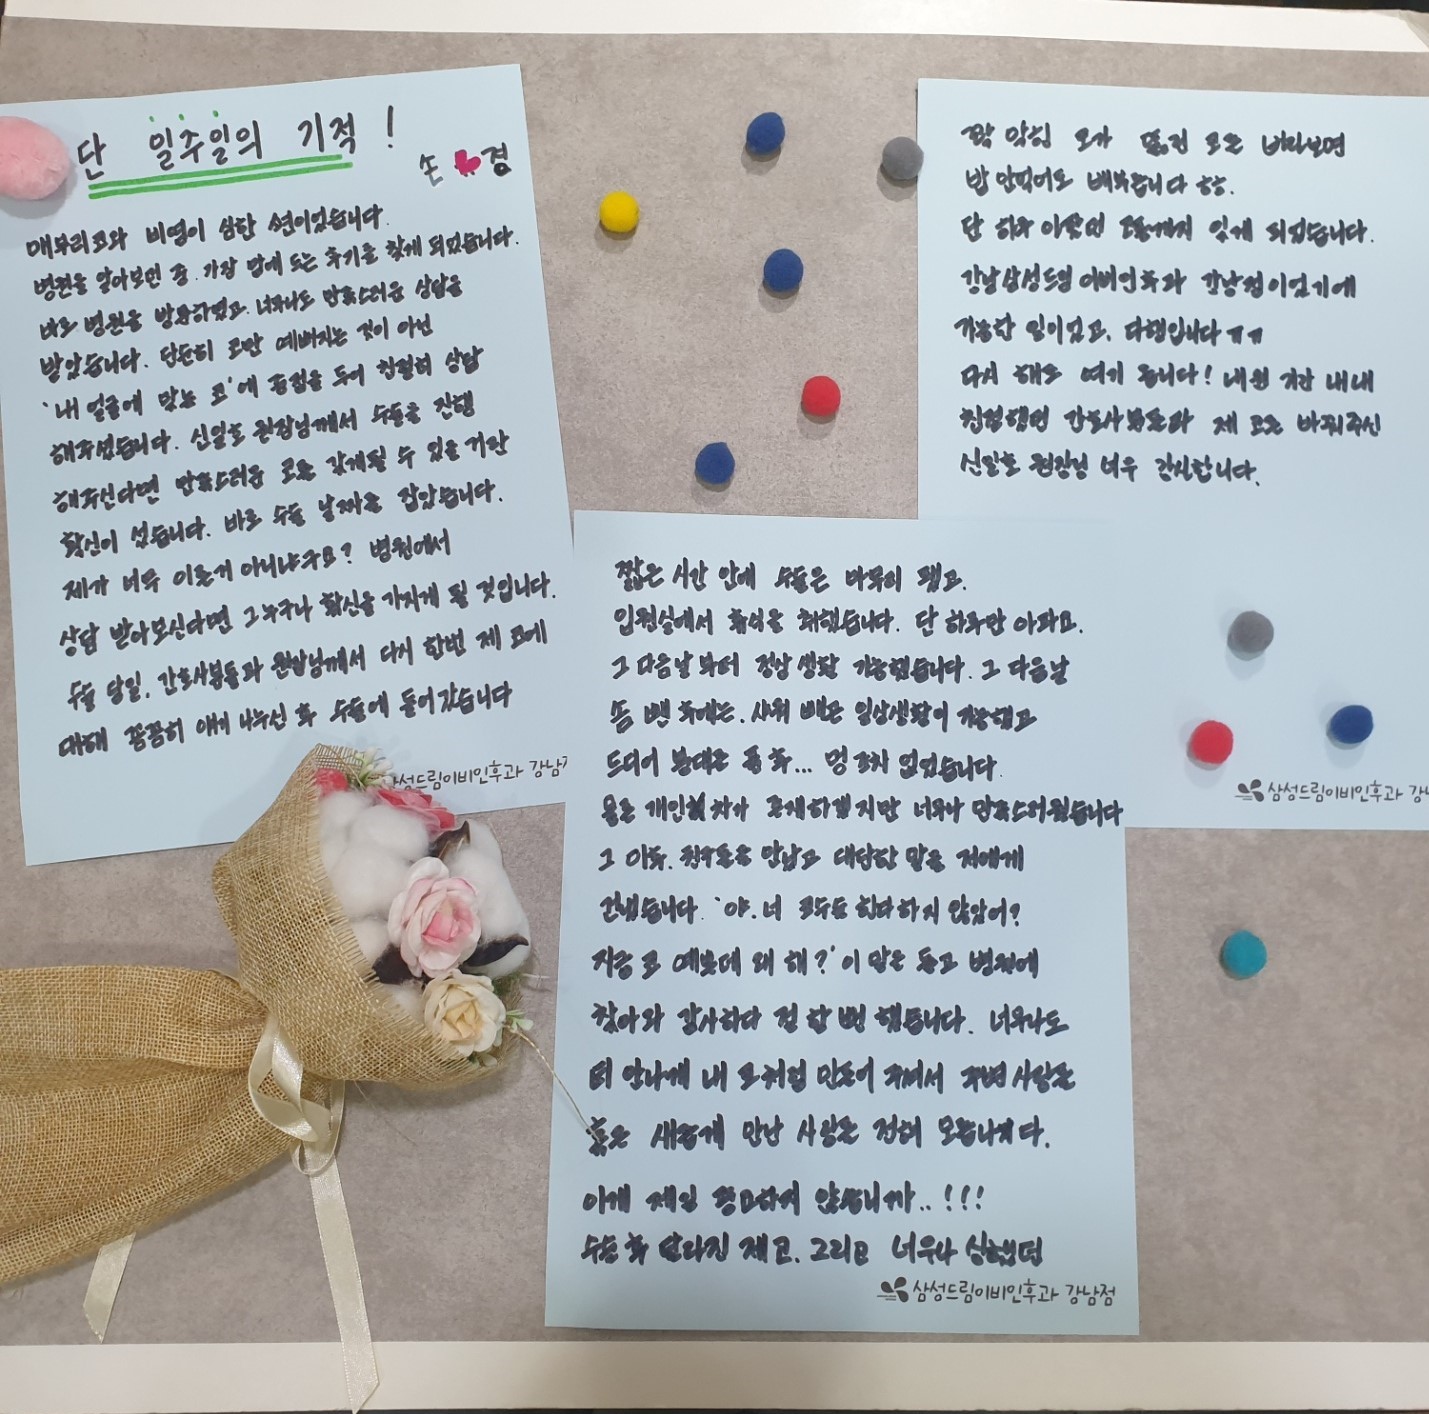 단 일주일의 기적!
손 경
매부리코와 비염이 심한 편이었습니다.
병원을 알아보던 중, 가장 맘에 드는 후기를 찾게 되었습니다.
바로 병원을 방문하였고, 너무나도 만족스러운 상담을
받았습니다. 단순히 코만 예뻐지는 것이 아닌
'내 얼굴에 맞는 코'에 중점을 두어 친절히 상담
해주셨습니다. 신일호 원장님께서 수술을 진행
해주신다면 만족스러운 코를 갖게될 수 있을 거란
확신이 섰습니다. 바로 수술 날짜를 잡았습니다.
제가 너무 이른거 아니냐구요? 병원에서
상담 받아보신다면 그누구나 확신을 가지게 될 것입니다.
수술 당일, 간호사분들과 원장님께서 다시 한번 제 코에
대해 꼼꼼히 얘기 나누신 후 수술에 들어갔습니다
삼성드림이비인후과 강남점
짧은 시간 안에 수술은 마무리 됐고.
입원실에서 휴식을 취했습니다. 단 하루만 아파요.
그 다음날 부터 정상 생활 가능했습니다. 그 다음날
솜 뺀 후에는, 샤워 빼고 일상생활이 가능했고
드디어 붕대를 푼 후... 멍 조차 없었습니다.
물론 개인 차가 존재하겠지만 너무나 만족스러웠습니다
그 이후, 친구들을 만났고 대단한 말을 저에게
건넸습니다. '야. 너 코수술 한다하지 않았어?
지금 코 예쁜데 왜 해?' 이 말을 듣고 병원에
찾아와 감사하다 전할 뻔 했습니다. 너무나도
티 안나게 내 코처럼 만들어 주셔서 주변 사람들
혹은 새롭게 만난 사람들 전혀 모릅니다.
이게 제일 중요하지 않습니까..!!!
수술 후 달라진 제 코, 그리고 너무나 심했던
삼성드림이비인후과 강남점
꽉 막힌 코가 뚫린 코를 바라보면
밥 안먹어도 배부릅니다 ㅎㅎ.
단 하루 아팠던 고통까지 잊게 되었습니다.
강남삼성드림이비인후과 강남점이었기에
가능한 일이었고, 다행입니다 ㅠㅠ
다시 해도 여기 옵니다! 내원 기간 내내
친절했던 간호사분들과 제 코를 바꿔주신
신일호 원장님 너무 감사합니다.
삼성드림이비인후과 강